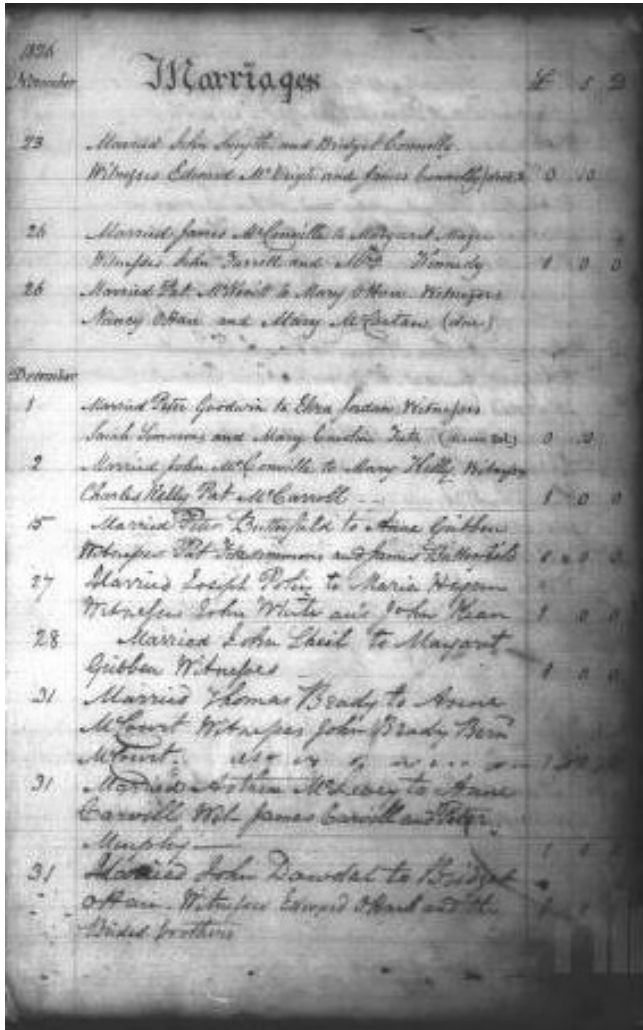 1836
November Marriages £ s D
23 Married John Smyth and Bridget Connolly.
Witnesses Edward and James Connolly 0 10
26 Married James McConville to Margaret
Witnesses John Farrell and Kennedy 1 0 0
26 Married Pat to Mary OHare Witnesses
Nancy OHare and Mary McCartan
December
1 Married Peter Goodwin to Eliza Jordan Witnesses
Sarah Simmons and Mary 0 10
2 Married John McConville to Mary Kelly Witnesses
Charles Kelly Pat McCarroll 1 0 0
15 Married Peter Butterfield to Anne Gribben
Witnesses Pat Fitzsimmons and James Butterfield 1 0 0
27 Married Joseph to Maria
Witnesses John White and John Kean 1 0 0
28 Married John Sheil to Margaret
Gribben Witnesses 1 0 0
31 Married Thomas Brady to Anne
McCourt Witnesses John Brady Bern
McCourt.
31 Married Arthur to Anne
Carvill Wit James Carvill and Peter
Murphy 1 0 0
31 Married John Dowdal to Bridget
OHare. Witnesses Edward OHare and the
Brides brothers